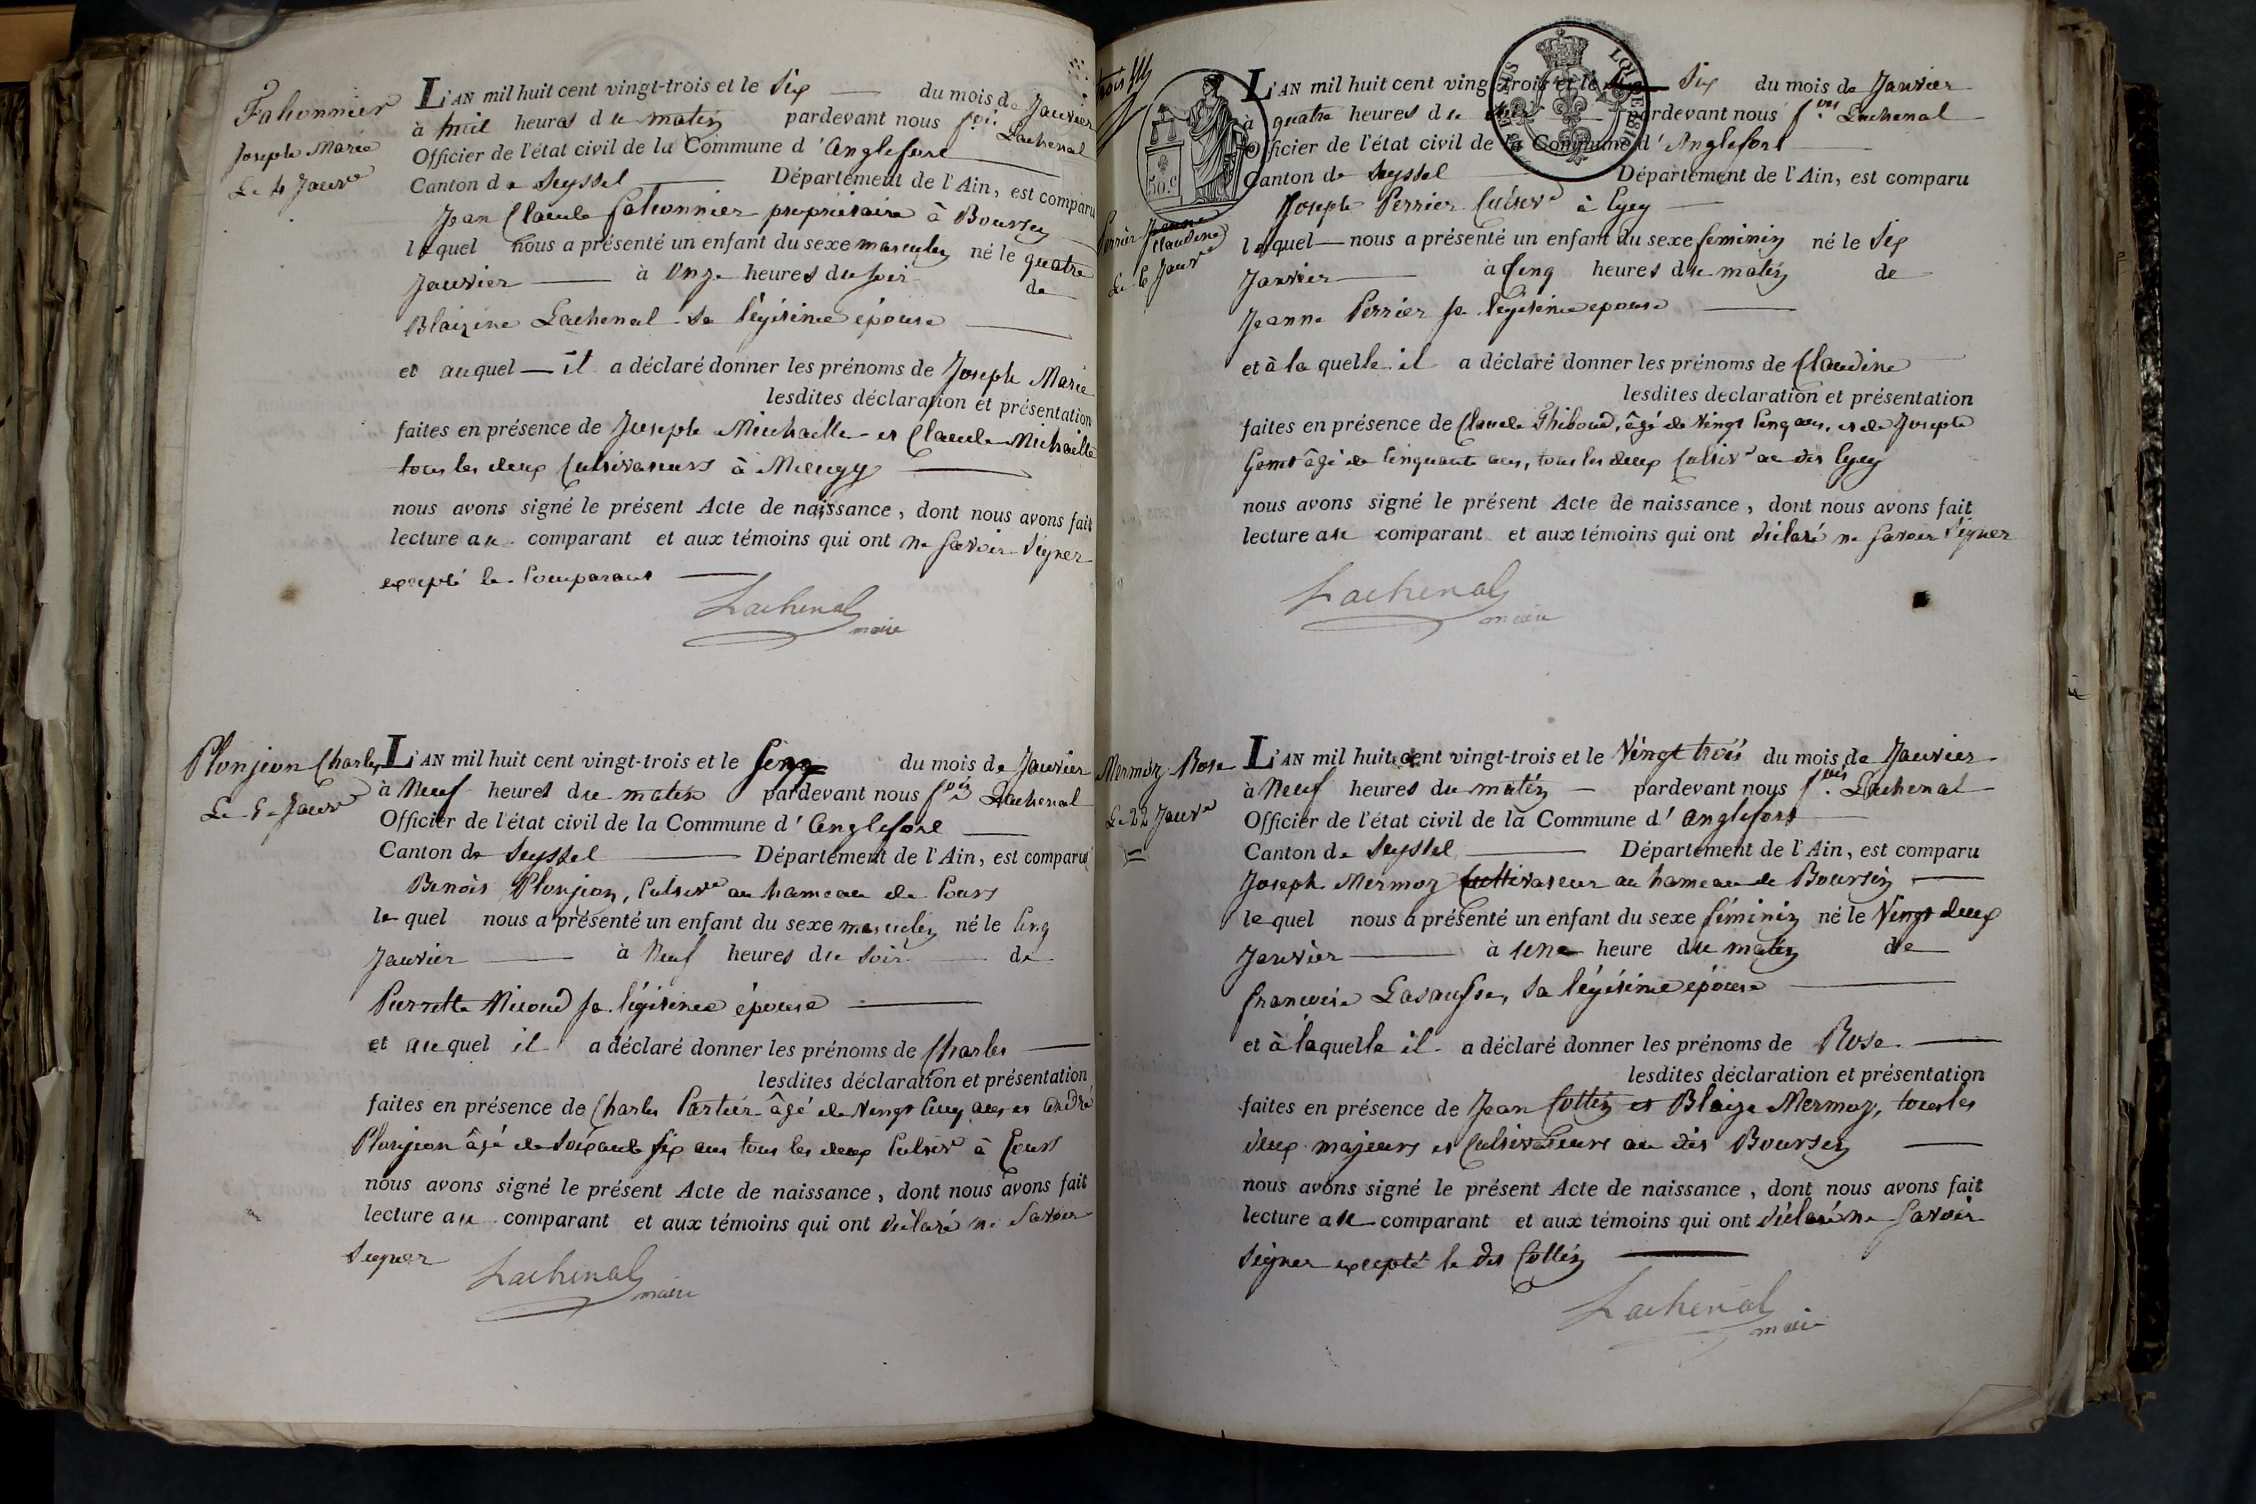 Falconnier
Joseph Marie
Le 4 Janvr
L'AN mil huit cent vingt-trois et le Six du mois de Janvier
à huit heures du matin pardevant nous fois Lachenal
Officier de l'état civil de la Commune d'Anglefort
Canton de Seyssel Département de l'Ain, est comparu
Jean Claude falconnier propriétaire à Boursin
lequel nous a présenté un enfant du sexe masculin né le quatre
Janvier à Onze heures du soir de
Blaizine Lachenal sa légitime épouse
et auquel il a déclaré donner les prénoms de Joseph Marie
lesdites déclaration et présentation
faites en présence de Joseph Michaille et Claude Michaille
tous les deux Cultivateurs à Mieugy
nous avons signé le présent Acte de naissance, dont nous avons fait
lecture au comparant et aux témoins qui ont ne savoir signer
excepté le Comparant
Lachenal
maire
Plonjeon Charles
Le 5 Janvr
L'AN mil huit cent vingt-trois et le Cinq du mois de Janvier
à Neuf heures du matin pardevant nous fois Lachenal
Officier de l'état civil de la Commune d'Anglefort
Canton de Seyssel Département de l'Ain, est comparu
Benoit Plonjeon, Cultivr au hameau de Cours
lequel nous a présenté un enfant du sexe masculin né le Cinq
Janvier à Neuf heures du soir de
Pierrette Nicoud sa légitime épouse
et auquel il a déclaré donner les prénoms de Charles
lesdites déclaration et présentation
faites en présence de Charles Portier âgé de Vingt Cinq ans et André
Plonjeon âgé de soixante six ans tous les deux Cultivr à Cours
nous avons signé le présent Acte de naissance, dont nous avons fait
lecture au comparant et aux témoins qui ont déclaré ne Savoir
Signer
Lachenal
maire
trois
50 C.
Perrier Jeanne
Claudine
Le 6 Janvr
L'AN mil huit cent vingt-trois et le Six du mois de Janvier
à quatre heures du soir pardevant nous fois Lachenal
Officier de l'état civil de la Commune d'Anglefort
Canton de Seyssel Département de l'Ain, est comparu
Joseph Perrier Cultivr à
lequel nous a présenté un enfant du sexe féminin né le Six
Janvier à Cinq heures du matin de
Jeanne Perrier sa légitime épouse
et à la quelle il a déclaré donner les prénoms de Claudine
lesdites déclaration et présentation
faites en présence de Claude Thiboud, âgé de Vingt Cinq ans, et de Joseph
âgé de Cinquante ans, tous les deux Cultivr au dit
nous avons signé le présent Acte de naissance, dont nous avons fait
lecture au comparant et aux témoins qui ont déclaré ne savoir Signer
Lachenal
maire
Mermoz Rose
Le 22 Janvr
L'AN mil huit cent vingt-trois et le Vingt trois du mois de Janvier
à Neuf heures du matin pardevant nous fois Lachenal
Officier de l'état civil de la Commune d'Anglefort
Canton de Seyssel Département de l'Ain, est comparu
Joseph Mermoz Cultivateur au hameau de Boursin
lequel nous a présenté un enfant du sexe féminin né le Vingt deux
Janvier à une heure du matin de
françoise Lasausse, sa légitime épouse
et à laquelle il a déclaré donner les prénoms de Rose
lesdites déclaration et présentation
faites en présence de Jean Collin et Blaize Mermoz, tous les
deux majeurs et Cultivateurs au dit Boursin
nous avons signé le présent Acte de naissance, dont nous avons fait
lecture au comparant et aux témoins qui ont déclaré ne Savoir
Signer excepté le dit Collin
Lachenal
maire